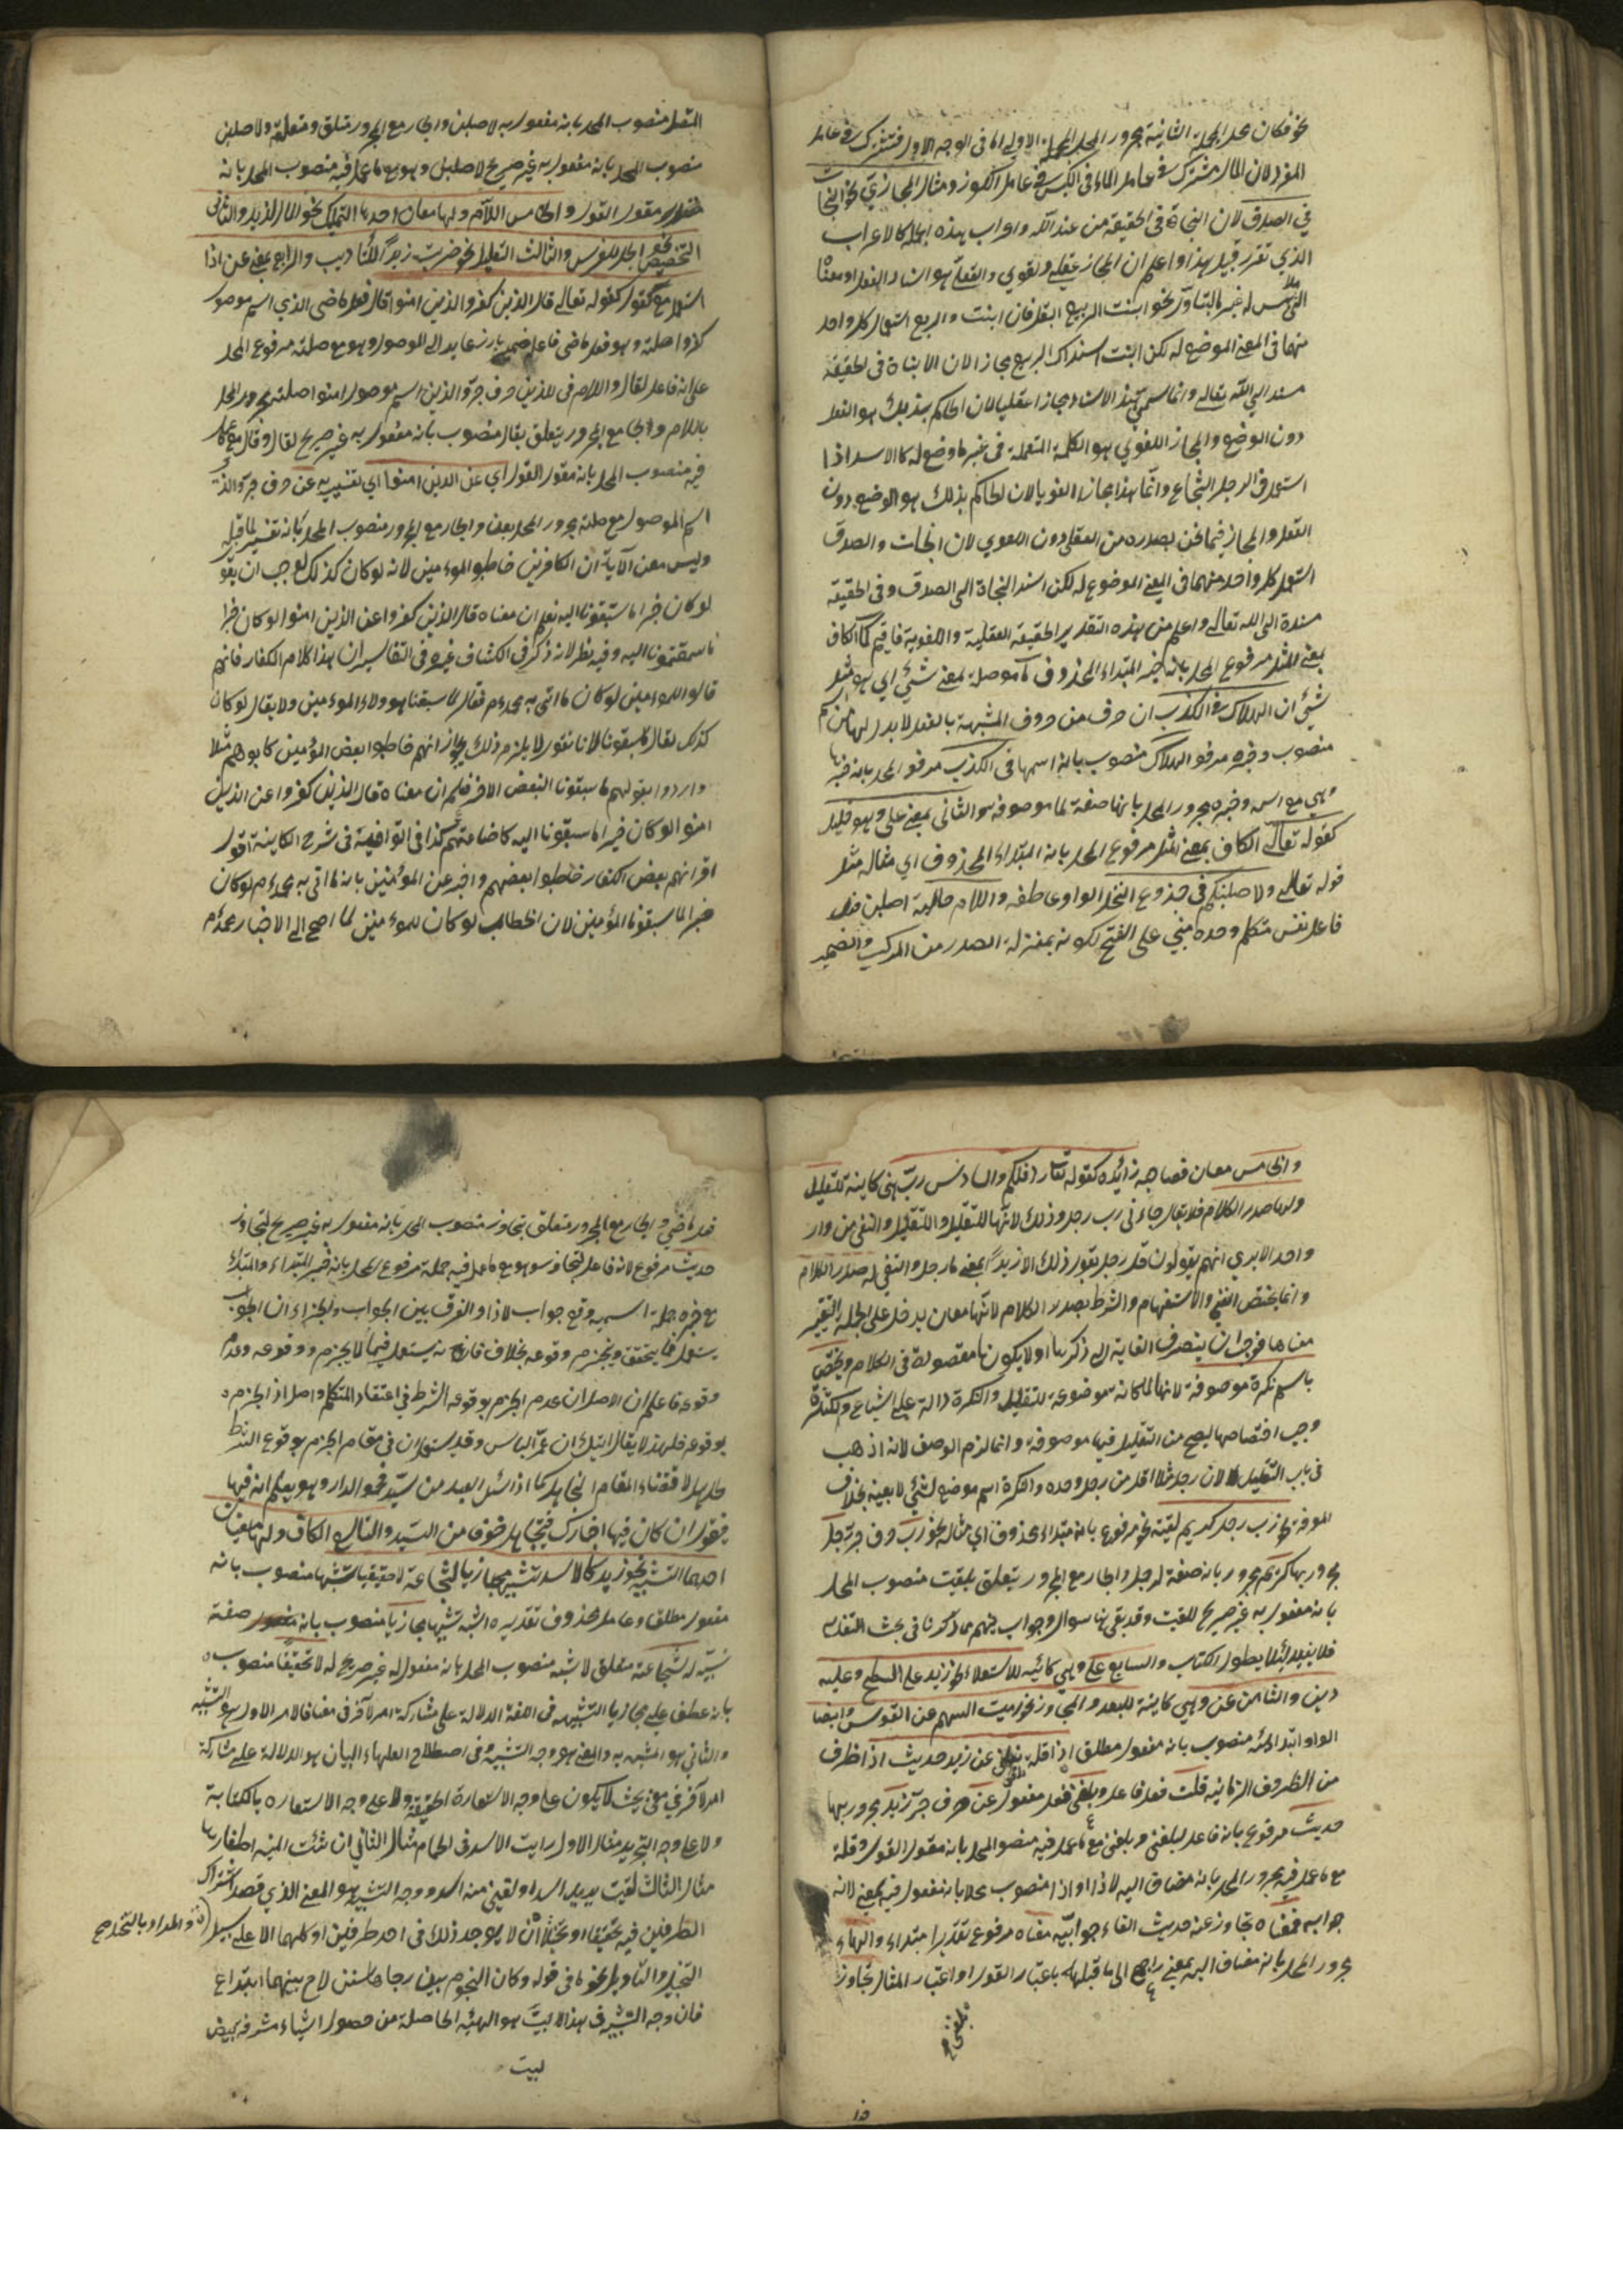 نحو فكان محل الجملة الثانية مجرور المحل الجملة الاولى اما فى الوجه الاول فتشترك فى عامل
المفرد لان المال مشترك فى عامل الماء فى الكيس فى عامل الكوز ومثال المجازي نحو النجاة
في الصدق لان النجاة فى الحقيقة من عند الله واعراب هذه الجملة كالاعراب
الذي تقرر قبيل هذا واعلم ان المجاز عقلي ولغوي والعقلي هو اسناد الفعل او معناه
الى ملابس له غير ما بالتأول نحو انبت الربيع البقل فان انبت والربيع استعمل كل واحد
منهما فى المعنى الموضع له لكن انبت اسناده الى الربيع مجاز لان الانبات فى الحقيقة
مسند الى الله تعالى وانما سمي هذا الاسناد مجازا عقليا لان الحاكم بذلك هو العقل
دون الوضع والمجاز اللغوي هو الكلمة المستعملة فى غير ما وضع له كالاسد اذا
استعمل فى الرجل الشجاع وانما هذا مجازا لغويا لان الحاكم بذلك هو الوضع دون
العقل والمجاز فيما نحن بصدده من العقلى دون اللغوي لان النجات والصدق
استعمل كل واحد منهما فى المعنى الموضوع له لكن اسند النجاة الى الصدق وفى الحقيقة
مسندة الى الله تعالى واعلم من هذه التقدير الحقيقة العقلية واللغوية فافهم كما الكاف
بمعنى المثل مرفوع المحل بانه خبر المبتداء المحذوف ما موصلة بمعنى شيئ اي هو مثل
شيئ ان الهلاك فى الكذب ان حرف من حروف المشبهة بالفعل لابد لها من اسم
منصوب وخبر مرفوع الهلاك منصوب بانه اسمها فى الكذب مرفوع المحل بانه خبرها
وهي مع اسمه وخبره مجرور المحل بانها صفة لما موصوفه والثانى بمعنى على وهو قليل
كقوله تعالى الكاف بمعنى المثل مرفوع المحل بانه المبتداء المحذوف اي مثاله مثل
قوله تعالى ولاصلبنكم فى جذوع النخل الواو عاطفه واللام حالية اصلبن فعل
فاعله نفس متكلم وحده مبني على الفتح لكونه بمنزلة الصدر من المركب والضمير
المتصل منصوب المحل بانه مفعول به لاصلبن والجار مع المجرور متعلق ومتعلقه ولاصلبن
منصوب المحل بانه مفعول به غير صريح لاصلبن وهو مع ما عمل فيه منصوب المحل بانه
مقول القول والخامس اللام ولها معان احدها التمليك نحو المال لزيد والثانى
التخصيص نحو الجل للفرس والثالث التعليل نحو ضربت زيدا للتأديب والرابع بمعنى عن اذا
استعمل مع القول كقوله تعالى قال الذين كفروا للذين امنوا قال فعل ماضى الذي اسم موصول
كفروا صلته وهو فعل ماضى فاعله ضمير بارز عايد الى الموصول وهو مع صلته مرفوع المحل
على انه فاعل لقال واللام فى للذين حرف جر والذين اسم موصول امنوا صلته مجرور المحل
باللام والجار مع المجرور يتعلق بقال منصوب بانه مفعول به غير صريح لقال وقال مع ما عمل
فيه منصوب المحل بانه مقول القول اي عن الذين امنوا اي تفسيريه عن حرف جر والذين
اسم الموصول مع صلته مجرور المحل بعن والجار مع المجرور منصوب المحل بانه تفسير لما قبله
وليس معنى الآية ان الكافرين خاطبوا المؤمنين لانه لو كان كذلك لوجب ان يقو
لو كان خيرا ما سبقونا اليه نعلم ان معناه قال الذين كفروا عن الذين امنوا لو كان خيرا
ما سبقتمونا اليه وفيه نظر لانه ذكر فى الكشاف وغيره فى التفاسير ان هذا كلام الكفار فانهم
قالوا للمؤمنين لو كان ما اتى به محمدم فقال ما سبقنا هؤلاء المؤمنين ولا يقال لو كان
كذلك لقال ما سبقونا لانا نقول لا يلزم ذلك بجواز انهم خاطبوا بعض المؤمنين كابوهم مثلا
وارادوا بقولهم ما سبقونا البعض الاخر فعلم ان معناه قال الذين كفروا عن الذين
امنوا لو كان خيرا ما سبقونا اليه كذا فى الوافية فى شرح الكافية اقول
اقرانهم بعض الكفار خاطبوا بعضهم واخبر عن المؤمنين بانه ما اتى به محمدم لو كان
خيرا ما سبقونا المؤمنين لان الخطاب لو كان للمؤمنين لما احتج الى الاخبار
والخامس معان فصاحبه زائده كقوله تعالى ردف لكم والسادس رب هى كاينة للتقليل
ولها صدر الكلام فلا يقال جاءنى رب رجل وذلك لانها للتقليل والتقليل والنفى من وار
واحد الا يرى انهم يقولون قل رجل يقول ذلك الا زيدا بمعنى ما رجل والنفي له صدر الكلام
وانما يختص النفى والاستفهام والشرط بصدر الكلام لانها معان يدخل على الجملة لتغير
معناها فوجب ان ينصرف العناية الى ذكرها اولا يكون ها مقصولة فى الكلام ويختص
باسم نكرة موصوفة لانها لما كانت موضوعة للتقليل والنكرة دالة على الشياع والكثرة
وجب اختصاصها ليصح من التقليل فيها موصوفة وانما لزم الوصف لانه اذهب
فى باب التقليل لان رجل مثلا اقل من رجل وحده والنكرة اسم موضع لشيئ لا بعينه بخلاف
المعرفه نحو رب رجل كريم لقيته مرفوع بانه مبتداء محذوف اي مثاله نحو رب حرف جر رجل
مجرور بها كريم مجرور بانه صفة لرجل والجار مع المجرور يتعلق بلقيت منصوب المحل
بانه مفعول به غير صريح للقيت وقد بقى ها سوال وجواب يفهم مما ذكرنا فى بحث
فلا نفيد لئلا يطول الكتاب والسابع على وهى كائنه للاستعلاء نحو زيد على السطح وعليه
دين والثامن عن وهي كاينة للبعد والمجاوزه نحو رميت السهم عن القوس وايضا
الواو ابتدائية منصوب بانه مفعول مطلق اذا قلت بلغنى عن زيد حديث اذا ظرف
من الظروف الزمانيه قلت فعل فاعل وبلغنى فعل مفعول عن حرف جر زيد مجرور بها
حديث مرفوع بانه فاعل لبلغنى وبلغنى مع ما عمل فيه منصوب المحل بانه مقول القول وقلت
مع ما عمل فيه مجرور المحل بانه مضاف اليه لاذا او اذا منصوب محلا بانه مفعول فيه بمعنى لانه
جوابه فمعناه تجاوز عنه حديث الفاء جوابيه معناه مرفوع تقديرا مبتداء والهاء
مجرور المحل بانه مضاف اليه بمعنى راجع الى ما قبلها باعتبار القول او اعتبار المثال تجاوز
فعل ماضي والجار مع المجرور متعلق بتجاوز منصوب المحل بانه مفعول به غير صريح لتجاوز
حديث مرفوع لانه فاعل لتجاوز وهو مع ما عمل فيه جملة مرفوع المحل بانه خبر المبتداء والمبتداء
مع خبره جملة اسمية وقع جواب لاذا والفرق بين الجواب والجزاء ان الجواب
يستعمل فيما يتحقق ويجزم وقوعه بخلاف فانه يستعمل فيما لا يجزم ووقوعه وعدم
وقوعه فاعلم ان الاصل ان عدم الجزم بوقوعه الشرط فى اعتقاد المتكلم واصل اذا الجزم
بوقوعه فلهذا لا يقال اتيك ان غمر الباس وقد يستعمل ان فى مقام الجزم بوقوع الشرط
لاقتضاء المقام التجاهل كما اذا سئل العبد من سيد هو فى الدار وهو يعلم انه فيها
فيقول ان كان فيها اخبارك فيتجاهل خوفا من السيد والتاسع الكاف ولها معنيان
احدهما التشبيه نحو زيد كالاسد تشبيها مجازيا لشجاعة لا حقيقيا تشبيها منصوب بانه
مفعول مطلق وعامله محذوف تقديره اشبه تشبيها مجازيا منصوب بانه صفة
لشجاعة متعلق لاشبه منصوب المحل بانه مفعول له غير صريح له لا تحقيقا منصوب
بانه عطف على مجازيا التشبيه فى اللغة الدلالة على مشاركة امر لآخر فى معنى فالامر الاول هو المشبه
والثاني هو المشبه به والمعنى هو وجه التشبيه وفى اصطلاح العلماء البيان هو الدلالة على مشاركة
امر لآخر في معنى بحيث لا يكون على وجه الاستعارة الحقيقة ولا على وجه الاستعاره بالكناية
ولا على وجه التجريد مثال الاول رايت الاسد فى الحمام مثال الثاني ان شئت المنيه اظفارها
مثال الثالث لقيت بزيد اسدا ولقيني منه اسد ووجه التشبيه هو المعنى الذي قصد اشتراك
الطرفين فيه تحقيقا او تخيلا لا يوجد ذلك فى احد طرفين او كلهما الا على سبيل
والمراد بالتخيل صح
التخييل والتأويل نحو ما فى قوله وكان النجوم بين دجاها سنن لاح بينهما ابتداع
فان وجه التشبيه فى هذا البيت هو الهيئة الحاصلة من حصول اشياء مشرقه بيض
بيت